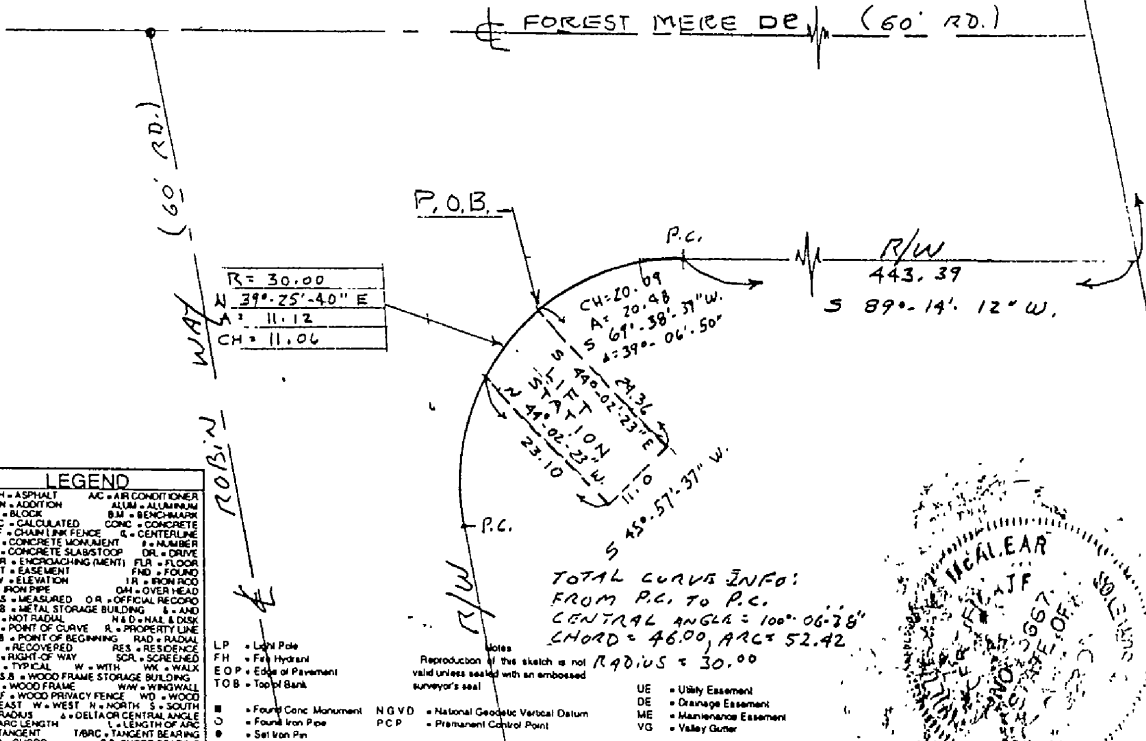 FOREST MERE DR (60' RD.)
(60' RD.)
ROBIN WAY
P.O.B.
P.C.
R/W
443.39
S 89°-14'-12" W.
R = 30.00
N 39°-25'-40" E
A = 11.12
CH = 11.06
CH=20.09
A= 20.48
S 69°-38'-39" W.
Δ=39°-06'-50"
S 44°-02'-23" E
24.36
LIFT
STATION
N 44°-02'-23" W.
23.10
11.0
S 45°-57'-37" W.
P.C.
R/W
TOTAL CURVE INFO:
FROM P.C. TO P.C.
CENTRAL ANGLE = 100°-06'-38"
CHORD = 46.00, ARC= 52.42
RADIUS = 30.00
LEGEND
= ASPHALT A/C = AIR CONDITIONER
= ADDITION ALUM = ALUMINUM
= BLOCK B.M. = BENCHMARK
= CALCULATED CONC = CONCRETE
= CHAIN LINK FENCE ℄ = CENTERLINE
= CONCRETE MONUMENT # = NUMBER
= CONCRETE SLAB/STOOP DR. = DRIVE
= ENCROACHING (MENT) FLR = FLOOR
= EASEMENT FND = FOUND
= ELEVATION I.R = IRON ROD
IRON PIPE O/H = OVER HEAD
= MEASURED O.R = OFFICIAL RECORD
= METAL STORAGE BUILDING & = AND
= NOT RADIAL N & D = NAIL & DISK
= POINT OF CURVE = PROPERTY LINE
= POINT OF BEGINNING RAD = RADIAL
= RECOVERED RES = RESIDENCE
= RIGHT-OF-WAY SCR. = SCREENED
= TYPICAL W = WITH WK = WALK
= WOOD FRAME STORAGE BUILDING
= WOOD FRAME W/W = WINGWALL
= WOOD PRIVACY FENCE WD = WOOD
EAST W = WEST N = NORTH S = SOUTH
RADIUS Δ = DELTA OR CENTRAL ANGLE
ARC LENGTH L = LENGTH OF ARC
TANGENT T/BRC = TANGENT BEARING
LP = Light Pole
FH = Fire Hydrant
EOP = Edge of Pavement
TOB = Top of Bank
= Found Conc Monument
= Found Iron Pipe
= Set Iron Pin
Notes
Reproduction of this sketch is not
valid unless sealed with an embossed
surveyor's seal
NGVD = National Geodetic Vertical Datum
PCP = Permanent Control Point
UE = Utility Easement
DE = Drainage Easement
ME = Maintenance Easement
VG = Valley Gutter
McALEAR
STATE OF